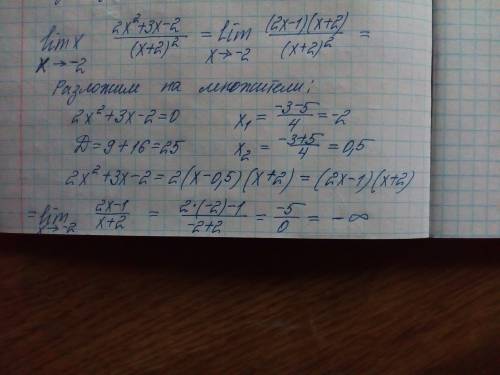 lim x (2x²+3x-2)/(x+2)² = lim ((2x-1)(x+2))/(x+2)² =
x→-2 x→-2
Разложим на множители:
2x²+3x-2=0 x₁ = (-3-5)/4 = -2
D=9+16=25 x₂ = (-3+5)/4 = 0,5
2x²+3x-2=2(x-0,5)(x+2)=(2x-1)(x+2)
= lim (2x-1)/(x+2) = (2·(-2)-1)/(-2+2) = -5/0 = -∞
x→-2